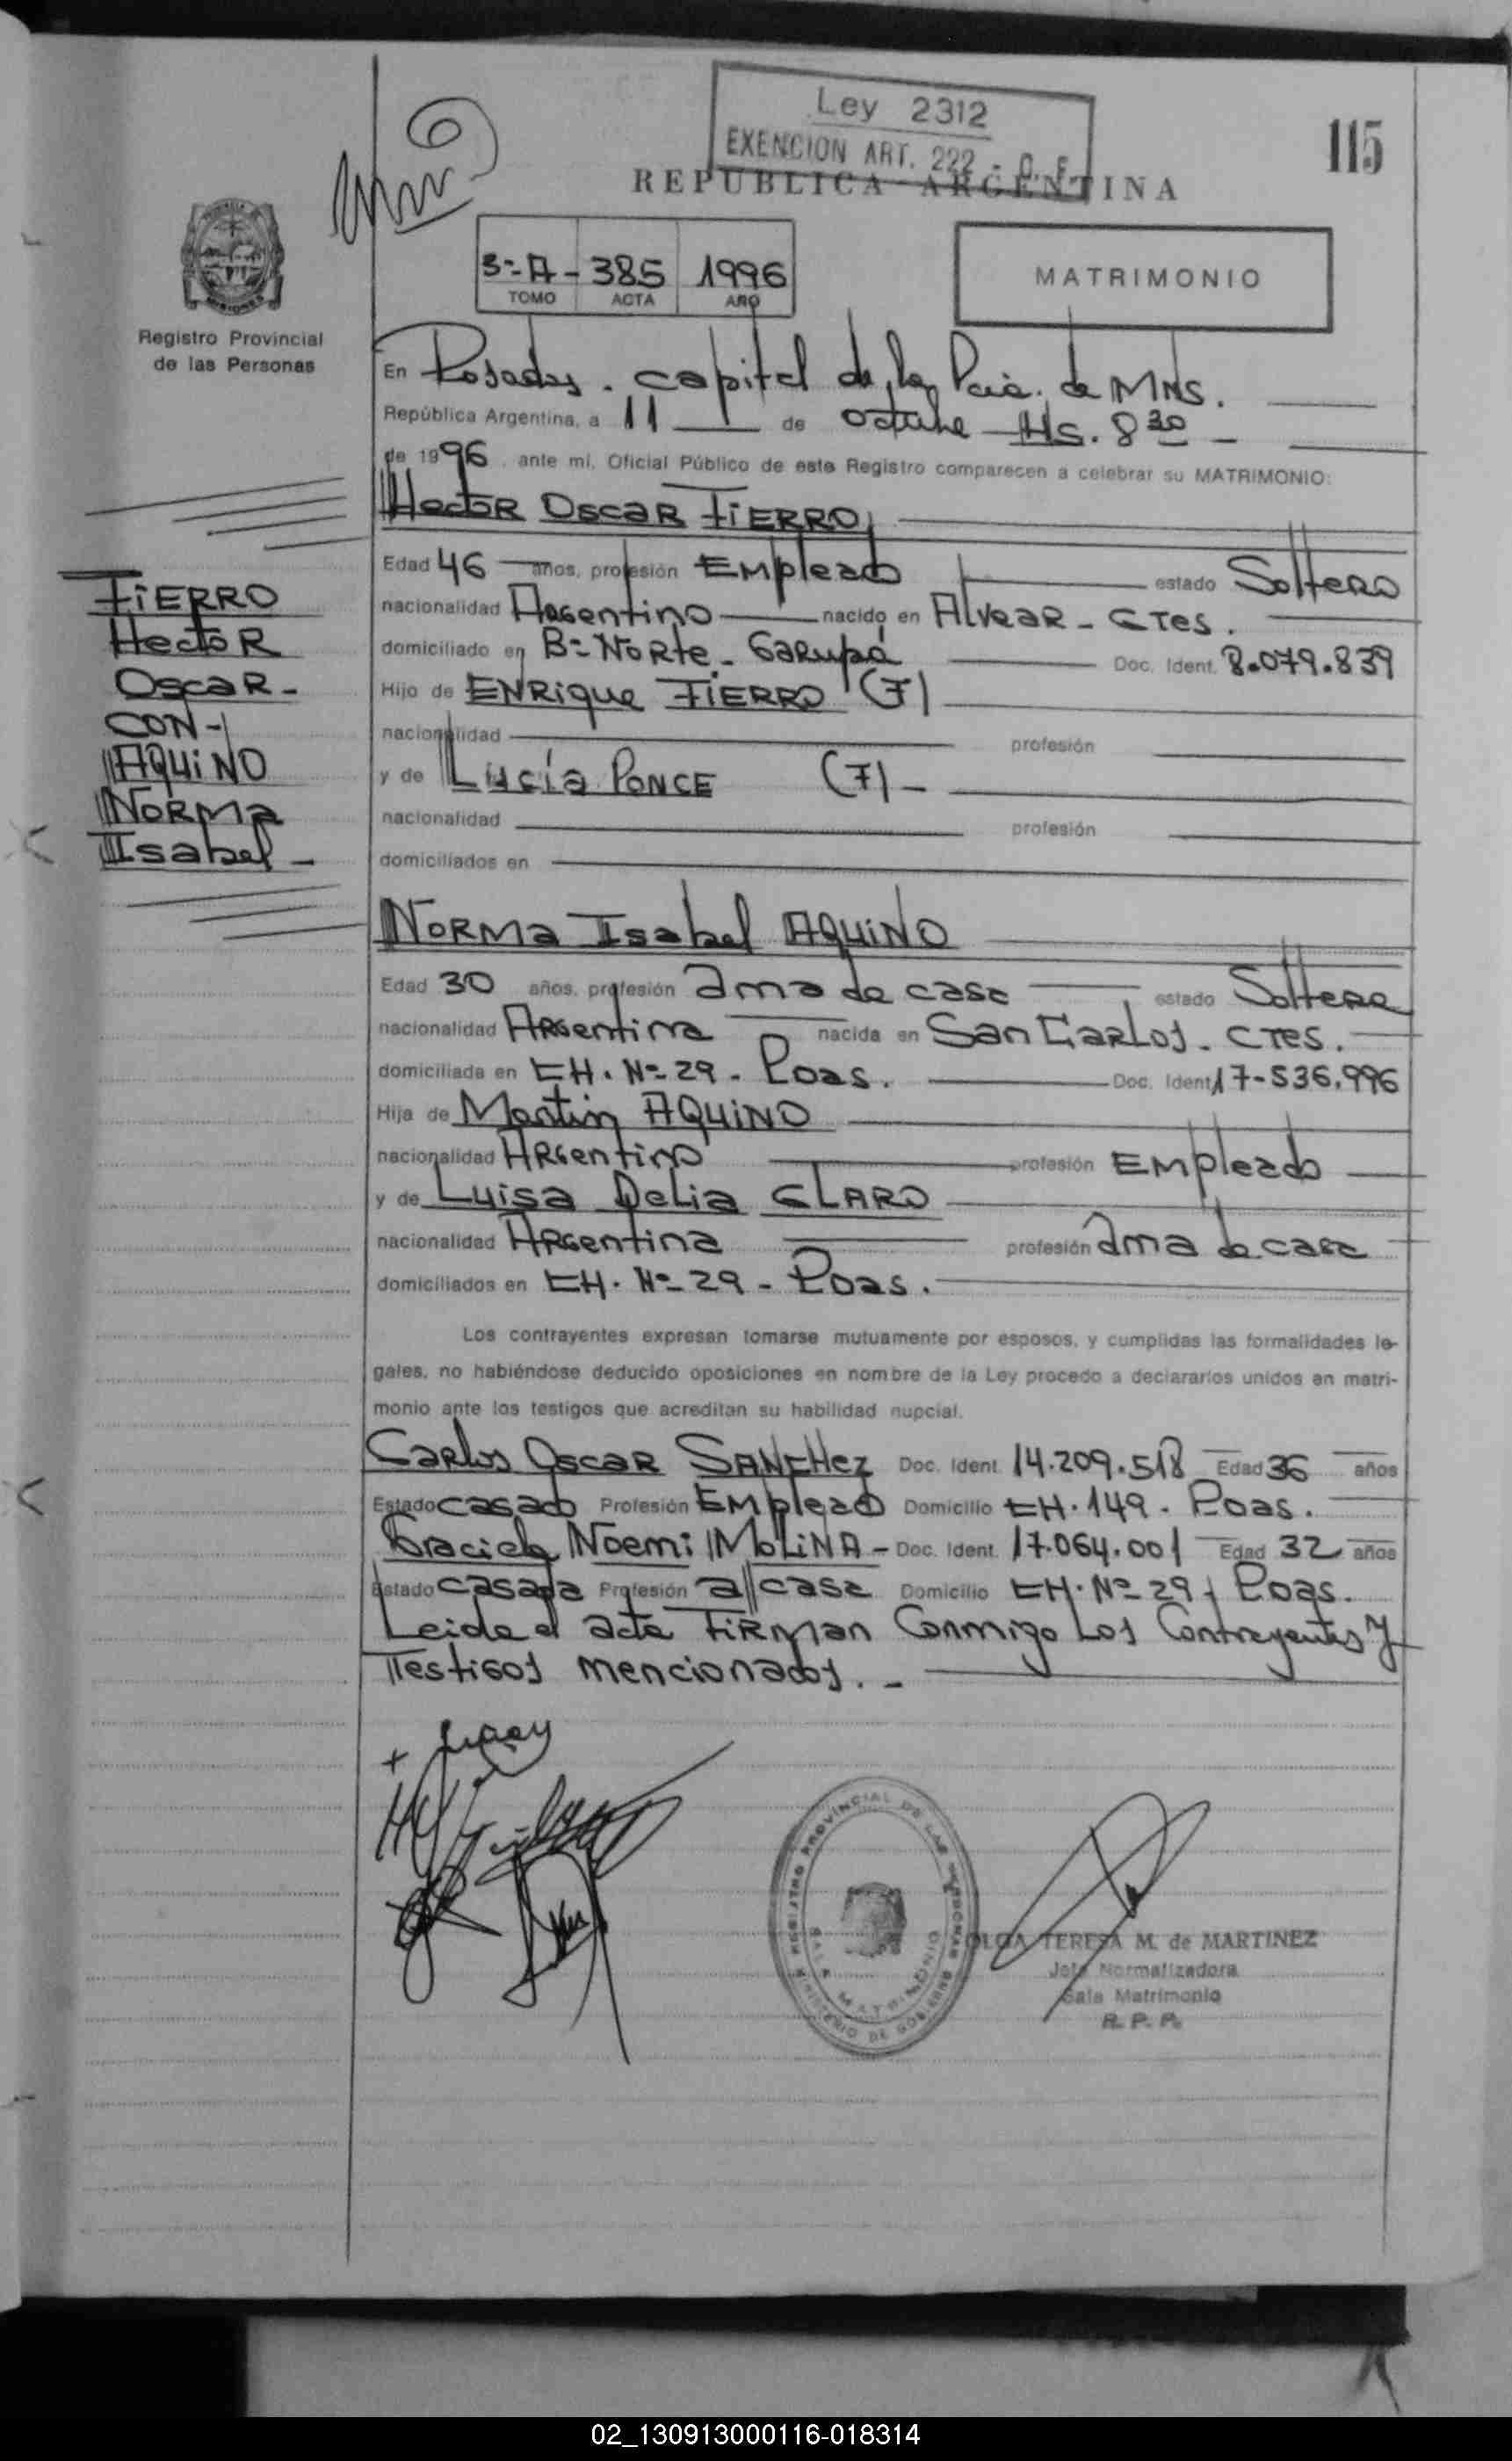 Ley 2312
EXENCION ART. 222 - C. F.
115
REPUBLICA ARGENTINA
3º-A - 385 1996
TOMO ACTA AÑO
MATRIMONIO
Registro Provincial
de las Personas
En Posadas. capital de la Pcia. de Mnes.
República Argentina, a 11 de octubre Hs. 8 30
de 1996, ante mí, Oficial Público de este Registro comparecen a celebrar su MATRIMONIO:
Hector Oscar FIERRO
Edad 46 años, profesión Empleado estado Soltero
nacionalidad Argentino nacido en Alvear - Ctes.
domiciliado en Bº Norte - Garupá Doc. Ident. 8.079.839
Hijo de ENRique FIERRO (F)
nacionalidad profesión
y de Lucía PONCE (F) -
nacionalidad profesión
domiciliados en
FIERRO
Hector
Oscar -
CON -
AQUINO
Norma
Isabel -
Norma Isabel AQUINO
Edad 30 años, profesión ama de casa estado Soltera
nacionalidad Argentina nacida en San Carlos - Ctes.
domiciliada en CH. Nº 29 - Poas. Doc. Ident. 17-536.996
Hija de Martin AQUINO
nacionalidad Argentino profesión Empleado
y de Luisa Delia CLARO
nacionalidad Argentina profesión ama de casa
domiciliados en CH. Nº 29 - Poas.
Los contrayentes expresan tomarse mutuamente por esposos, y cumplidas las formalidades le-
gales, no habiéndose deducido oposiciones en nombre de la Ley procedo a declararlos unidos en matri-
monio ante los testigos que acreditan su habilidad nupcial.
Carlos Oscar SANCHez Doc. Ident. 14.209.518 Edad 36 años
Estado casado Profesión Empleado Domicilio CH. 149 - Poas.
Graciela Noemi MOLINA - Doc. Ident. 17.064.001 Edad 32 años
Estado casada Profesión a/casa Domicilio CH. Nº 29 - Poas.
Leida el acta Firman Conmigo Los Contrayentes y
Testigos mencionados. -
REGISTRO PROVINCIAL DE LAS PERSONAS
SALA MATRIMONIO
MINISTERIO DE GOBIERNO
OLGA TERESA M. de MARTINEZ
Jefe Normalizadora
Sala Matrimonio
R. P. P.
02_130913000116-018314